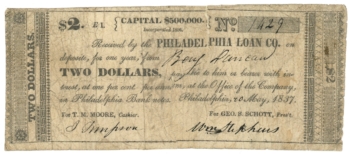 $2.
CAPITAL $500,000.
Incorporated 1836.
No. 1429
Received by the PHILADELPHIA LOAN CO. on
deposite, for one year, from Benj. Duncan
TWO DOLLARS, to him or bearer with in-
terest, at one per cent. per annum, at the Office of the Company,
in Philadelphia Bank notes. Philadelphia, 20 May, 1837.
For T. M. MOORE, Cashier, For GEO. B. SCHOTT, Prest.
J. Simpson Wm Stephens
TWO DOLLARS.
$2